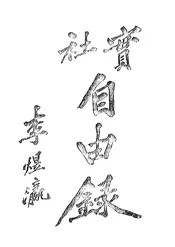 實社
自由錄
李煜瀛